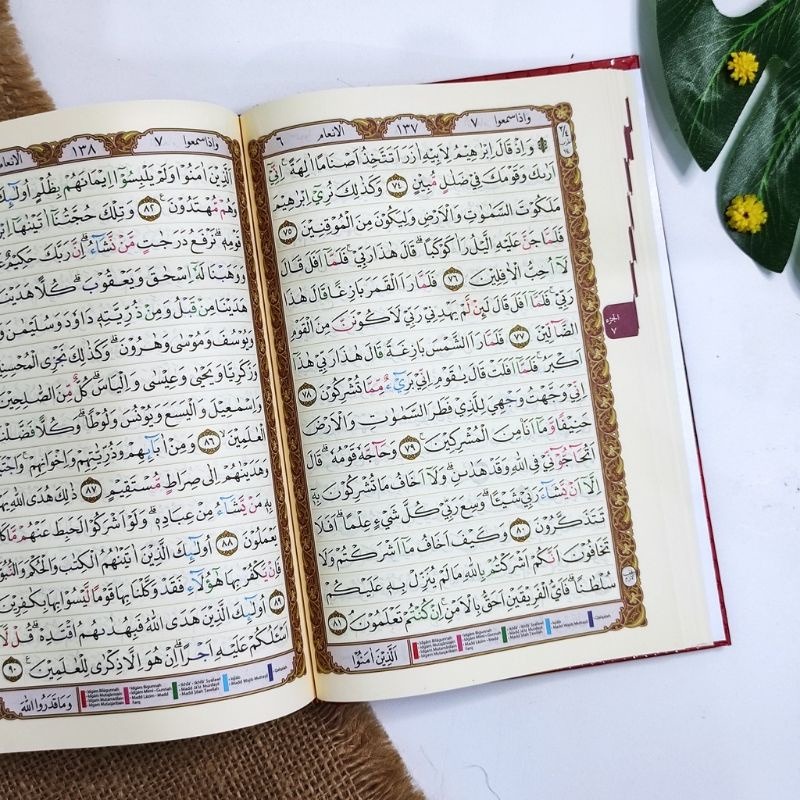 واذا سمعوا ٧ ١٣٧ الانعام ٦
۞ وَاِذْ قَالَ اِبْرٰهِيْمُ لِاَبِيْهِ اٰزَرَ اَتَتَّخِذُ اَصْنَامًا اٰلِهَةً ۚ اِنِّيْٓ
اَرٰىكَ وَقَوْمَكَ فِيْ ضَلٰلٍ مُّبِيْنٍ ٧٤ وَكَذٰلِكَ نُرِيْٓ اِبْرٰهِيْمَ
مَلَكُوْتَ السَّمٰوٰتِ وَالْاَرْضِ وَلِيَكُوْنَ مِنَ الْمُوْقِنِيْنَ ٧٥
فَلَمَّا جَنَّ عَلَيْهِ الَّيْلُ رَاٰ كَوْكَبًا ۚ قَالَ هٰذَا رَبِّيْ ۚ فَلَمَّآ اَفَلَ قَالَ
لَآ اُحِبُّ الْاٰفِلِيْنَ ٧٦ فَلَمَّا رَاَ الْقَمَرَ بَازِغًا قَالَ هٰذَا
رَبِّيْ ۚ فَلَمَّآ اَفَلَ قَالَ لَىِٕنْ لَّمْ يَهْدِنِيْ رَبِّيْ لَاَكُوْنَنَّ مِنَ الْقَوْمِ
الضَّاۤلِّيْنَ ٧٧ فَلَمَّا رَاَ الشَّمْسَ بَازِغَةً قَالَ هٰذَا رَبِّيْ هٰذَآ
اَكْبَرُ ۚ فَلَمَّآ اَفَلَتْ قَالَ يٰقَوْمِ اِنِّيْ بَرِيْۤءٌ مِّمَّا تُشْرِكُوْنَ ٧٨
اِنِّيْ وَجَّهْتُ وَجْهِيَ لِلَّذِيْ فَطَرَ السَّمٰوٰتِ وَالْاَرْضَ
حَنِيْفًا وَّمَآ اَنَا۠ مِنَ الْمُشْرِكِيْنَ ۚ ٧٩ وَحَاۤجَّهٗ قَوْمُهٗ ۗ قَالَ
اَتُحَاۤجُّوْۤنِّيْ فِى اللّٰهِ وَقَدْ هَدٰىنِ ۗ وَلَآ اَخَافُ مَا تُشْرِكُوْنَ بِهٖٓ
اِلَّآ اَنْ يَّشَاۤءَ رَبِّيْ شَيْـًٔا ۗ وَسِعَ رَبِّيْ كُلَّ شَيْءٍ عِلْمًا ۗ اَفَلَا
تَتَذَكَّرُوْنَ ٨٠ وَكَيْفَ اَخَافُ مَآ اَشْرَكْتُمْ وَلَا
تَخَافُوْنَ اَنَّكُمْ اَشْرَكْتُمْ بِاللّٰهِ مَا لَمْ يُنَزِّلْ بِهٖ عَلَيْكُمْ
سُلْطٰنًا ۗ فَاَيُّ الْفَرِيْقَيْنِ اَحَقُّ بِالْاَمْنِ ۚ اِنْ كُنْتُمْ تَعْلَمُوْنَ ۘ ٨١
اَلَّذِيْنَ اٰمَنُوْا
الجزء
٧
واذا سمعوا ٧ ١٣٨ الانعام
اَلَّذِيْنَ اٰمَنُوْا وَلَمْ يَلْبِسُوْٓا اِيْمَانَهُمْ بِظُلْمٍ
وَهُمْ مُّهْتَدُوْنَ ࣖ ٨٢ وَتِلْكَ حُجَّتُنَآ اٰتَيْنٰهَآ
قَوْمِهٖ ۗ نَرْفَعُ دَرَجٰتٍ مَّنْ نَّشَاۤءُ ۗ اِنَّ رَبَّكَ حَكِيْمٌ
وَوَهَبْنَا لَهٗٓ اِسْحٰقَ وَيَعْقُوْبَ ۗ كُلًّا هَدَيْنَا
هَدَيْنَا مِنْ قَبْلُ وَمِنْ ذُرِّيَّتِهٖ دَاوٗدَ وَسُلَيْمٰنَ
وَيُوْسُفَ وَمُوْسٰى وَهٰرُوْنَ ۗ وَكَذٰلِكَ نَجْزِى
وَزَكَرِيَّا وَيَحْيٰى وَعِيْسٰى وَاِلْيَاسَ ۗ كُلٌّ مِّنَ الصّٰلِحِيْنَ
وَاِسْمٰعِيْلَ وَالْيَسَعَ وَيُوْنُسَ وَلُوْطًا ۗ وَكُلًّا فَضَّلْنَا
الْعٰلَمِيْنَ ۙ ٨٦ وَمِنْ اٰبَاۤىِٕهِمْ وَذُرِّيّٰتِهِمْ وَاِخْوَانِهِمْ ۚ
وَهَدَيْنٰهُمْ اِلٰى صِرَاطٍ مُّسْتَقِيْمٍ ٨٧ ذٰلِكَ هُدَى اللّٰهِ
بِهٖ مَنْ يَّشَاۤءُ مِنْ عِبَادِهٖ ۗ وَلَوْ اَشْرَكُوْا لَحَبِطَ عَنْهُمْ
يَعْمَلُوْنَ ٨٨ اُولٰۤىِٕكَ الَّذِيْنَ اٰتَيْنٰهُمُ الْكِتٰبَ وَالْحُكْمَ
فَاِنْ يَّكْفُرْ بِهَا هٰٓؤُلَاۤءِ فَقَدْ وَكَّلْنَا بِهَا قَوْمًا لَّيْسُوْا بِهَا بِكٰفِرِيْنَ
٨٩ اُولٰۤىِٕكَ الَّذِيْنَ هَدَى اللّٰهُ فَبِهُدٰىهُمُ اقْتَدِهْ ۗ قُلْ لَّآ
اَسْـَٔلُكُمْ عَلَيْهِ اَجْرًا ۗ اِنْ هُوَ اِلَّا ذِكْرٰى لِلْعٰلَمِيْنَ ࣖ ٩٠
وَمَا قَدَرُوا اللّٰهَ